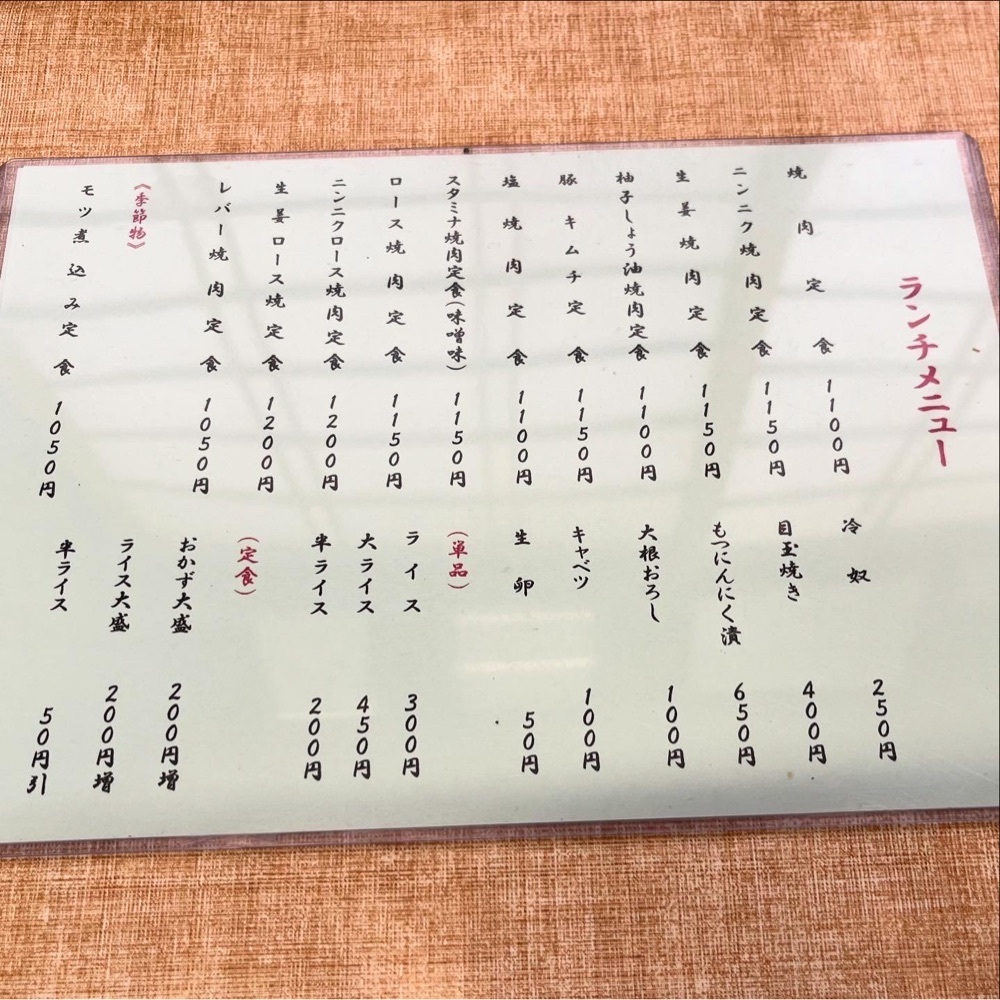 ランチメニュー
焼肉定食 1100円
ニンニク焼肉定食 1150円
生姜焼肉定食 1150円
柚子しょう油焼肉定食 1100円
豚キムチ定食 1150円
塩焼肉定食 1100円
スタミナ焼肉定食(味噌味) 1150円
ロース焼肉定食 1150円
ニンニクロース焼肉定食 1200円
生姜ロース焼定食 1200円
レバー焼肉定食 1050円
《季節物》
モツ煮込み定食 1050円
冷奴 250円
目玉焼き 400円
もつにんにく漬 650円
大根おろし 100円
キャベツ 100円
生卵 50円
(単品)
ライス 300円
大ライス 450円
半ライス 200円
(定食)
おかず大盛 200円増
ライス大盛 200円増
半ライス 50円引